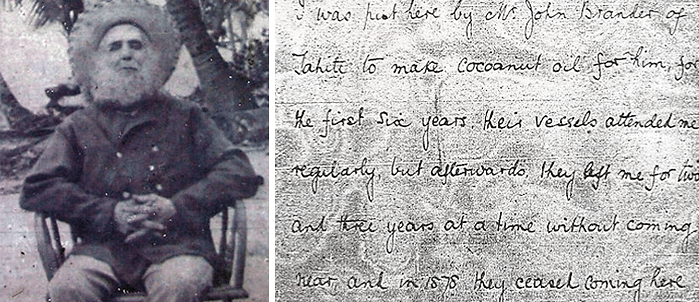 I was put here by Mr. John Brander of
Tahiti to make cocoanut oil for him, for
the first six years. their vessels attended me
regularly, but afterwards, they left me for two
and three years at a time without coming
near, and in 1878 they ceased coming here